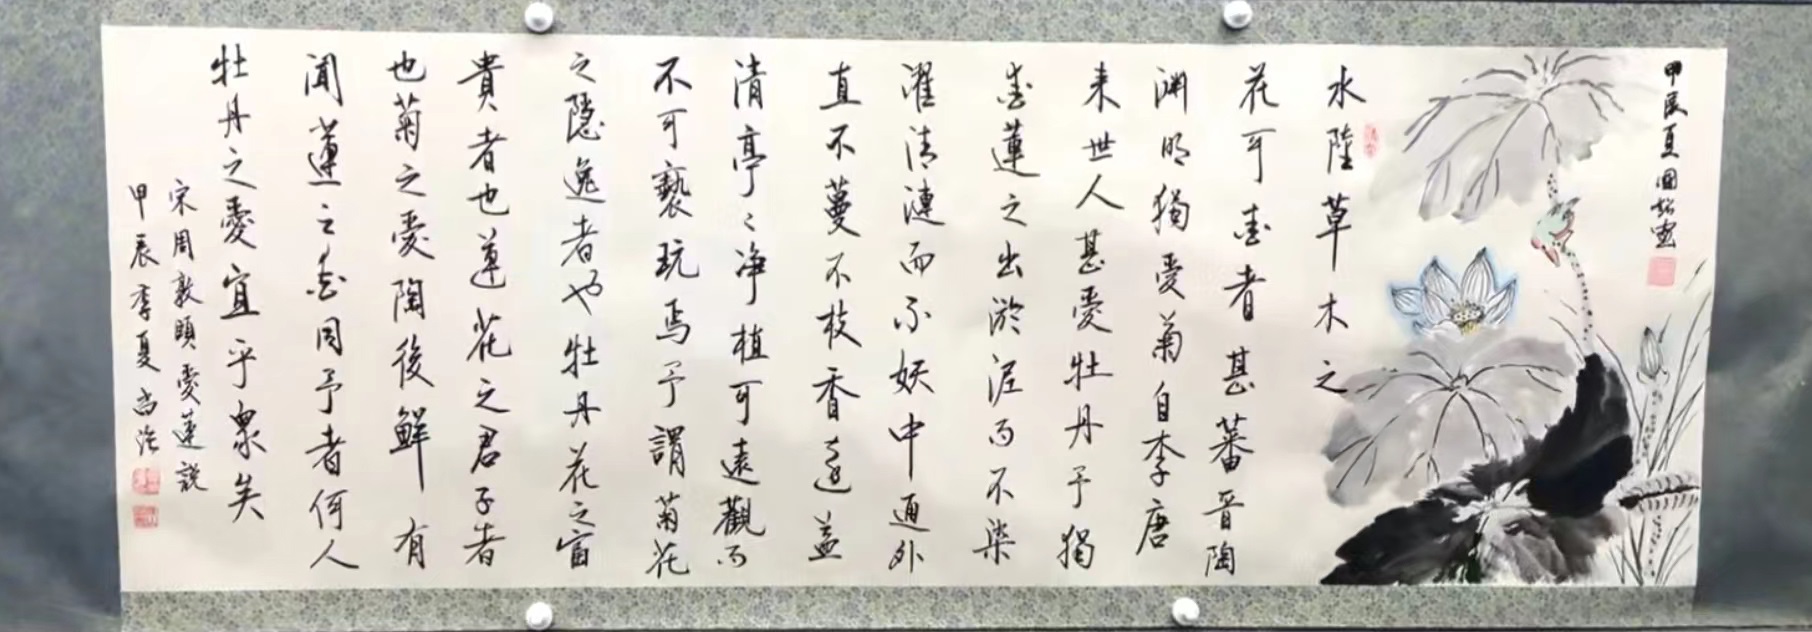 甲辰夏國
水陸草木之
花可爱者甚蕃晋陶
渊明獨愛菊自李唐
来世人甚愛牡丹予獨
爱蓮之出淤泥而不染
濯清漣而不妖中通外
直不蔓不枝香遠益
清亭々净植可遠觀而
不可褻玩焉予謂菊花
之隠逸者也牡丹花之富
貴者也蓮花之君子者
也菊之愛陶後鮮有
聞蓮之爱同予者何人
牡丹之愛宜乎衆矣
宋周敦頤愛蓮説
甲辰季夏尚